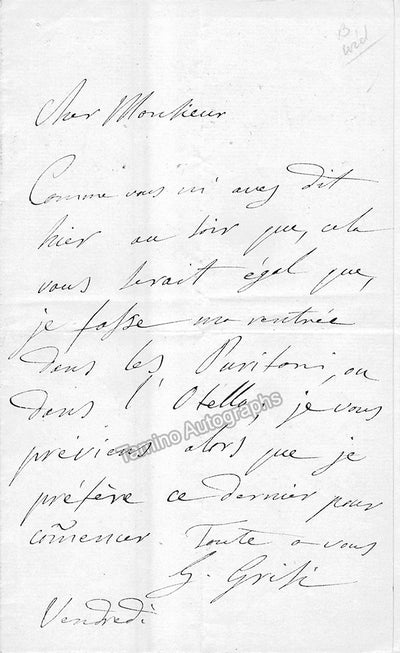 Cher Monsieur
Comme vous m'avez dit
hier au soir que, cela
vous serait égal que,
je fasse ma rentrée
dans les Puritani, ou
dans l'Otello, je vous
préviens alors que je
préfère ce dernier pour
com̃encer. Toute a vous
G. Grisi
Vendredi
Tamino Autographs